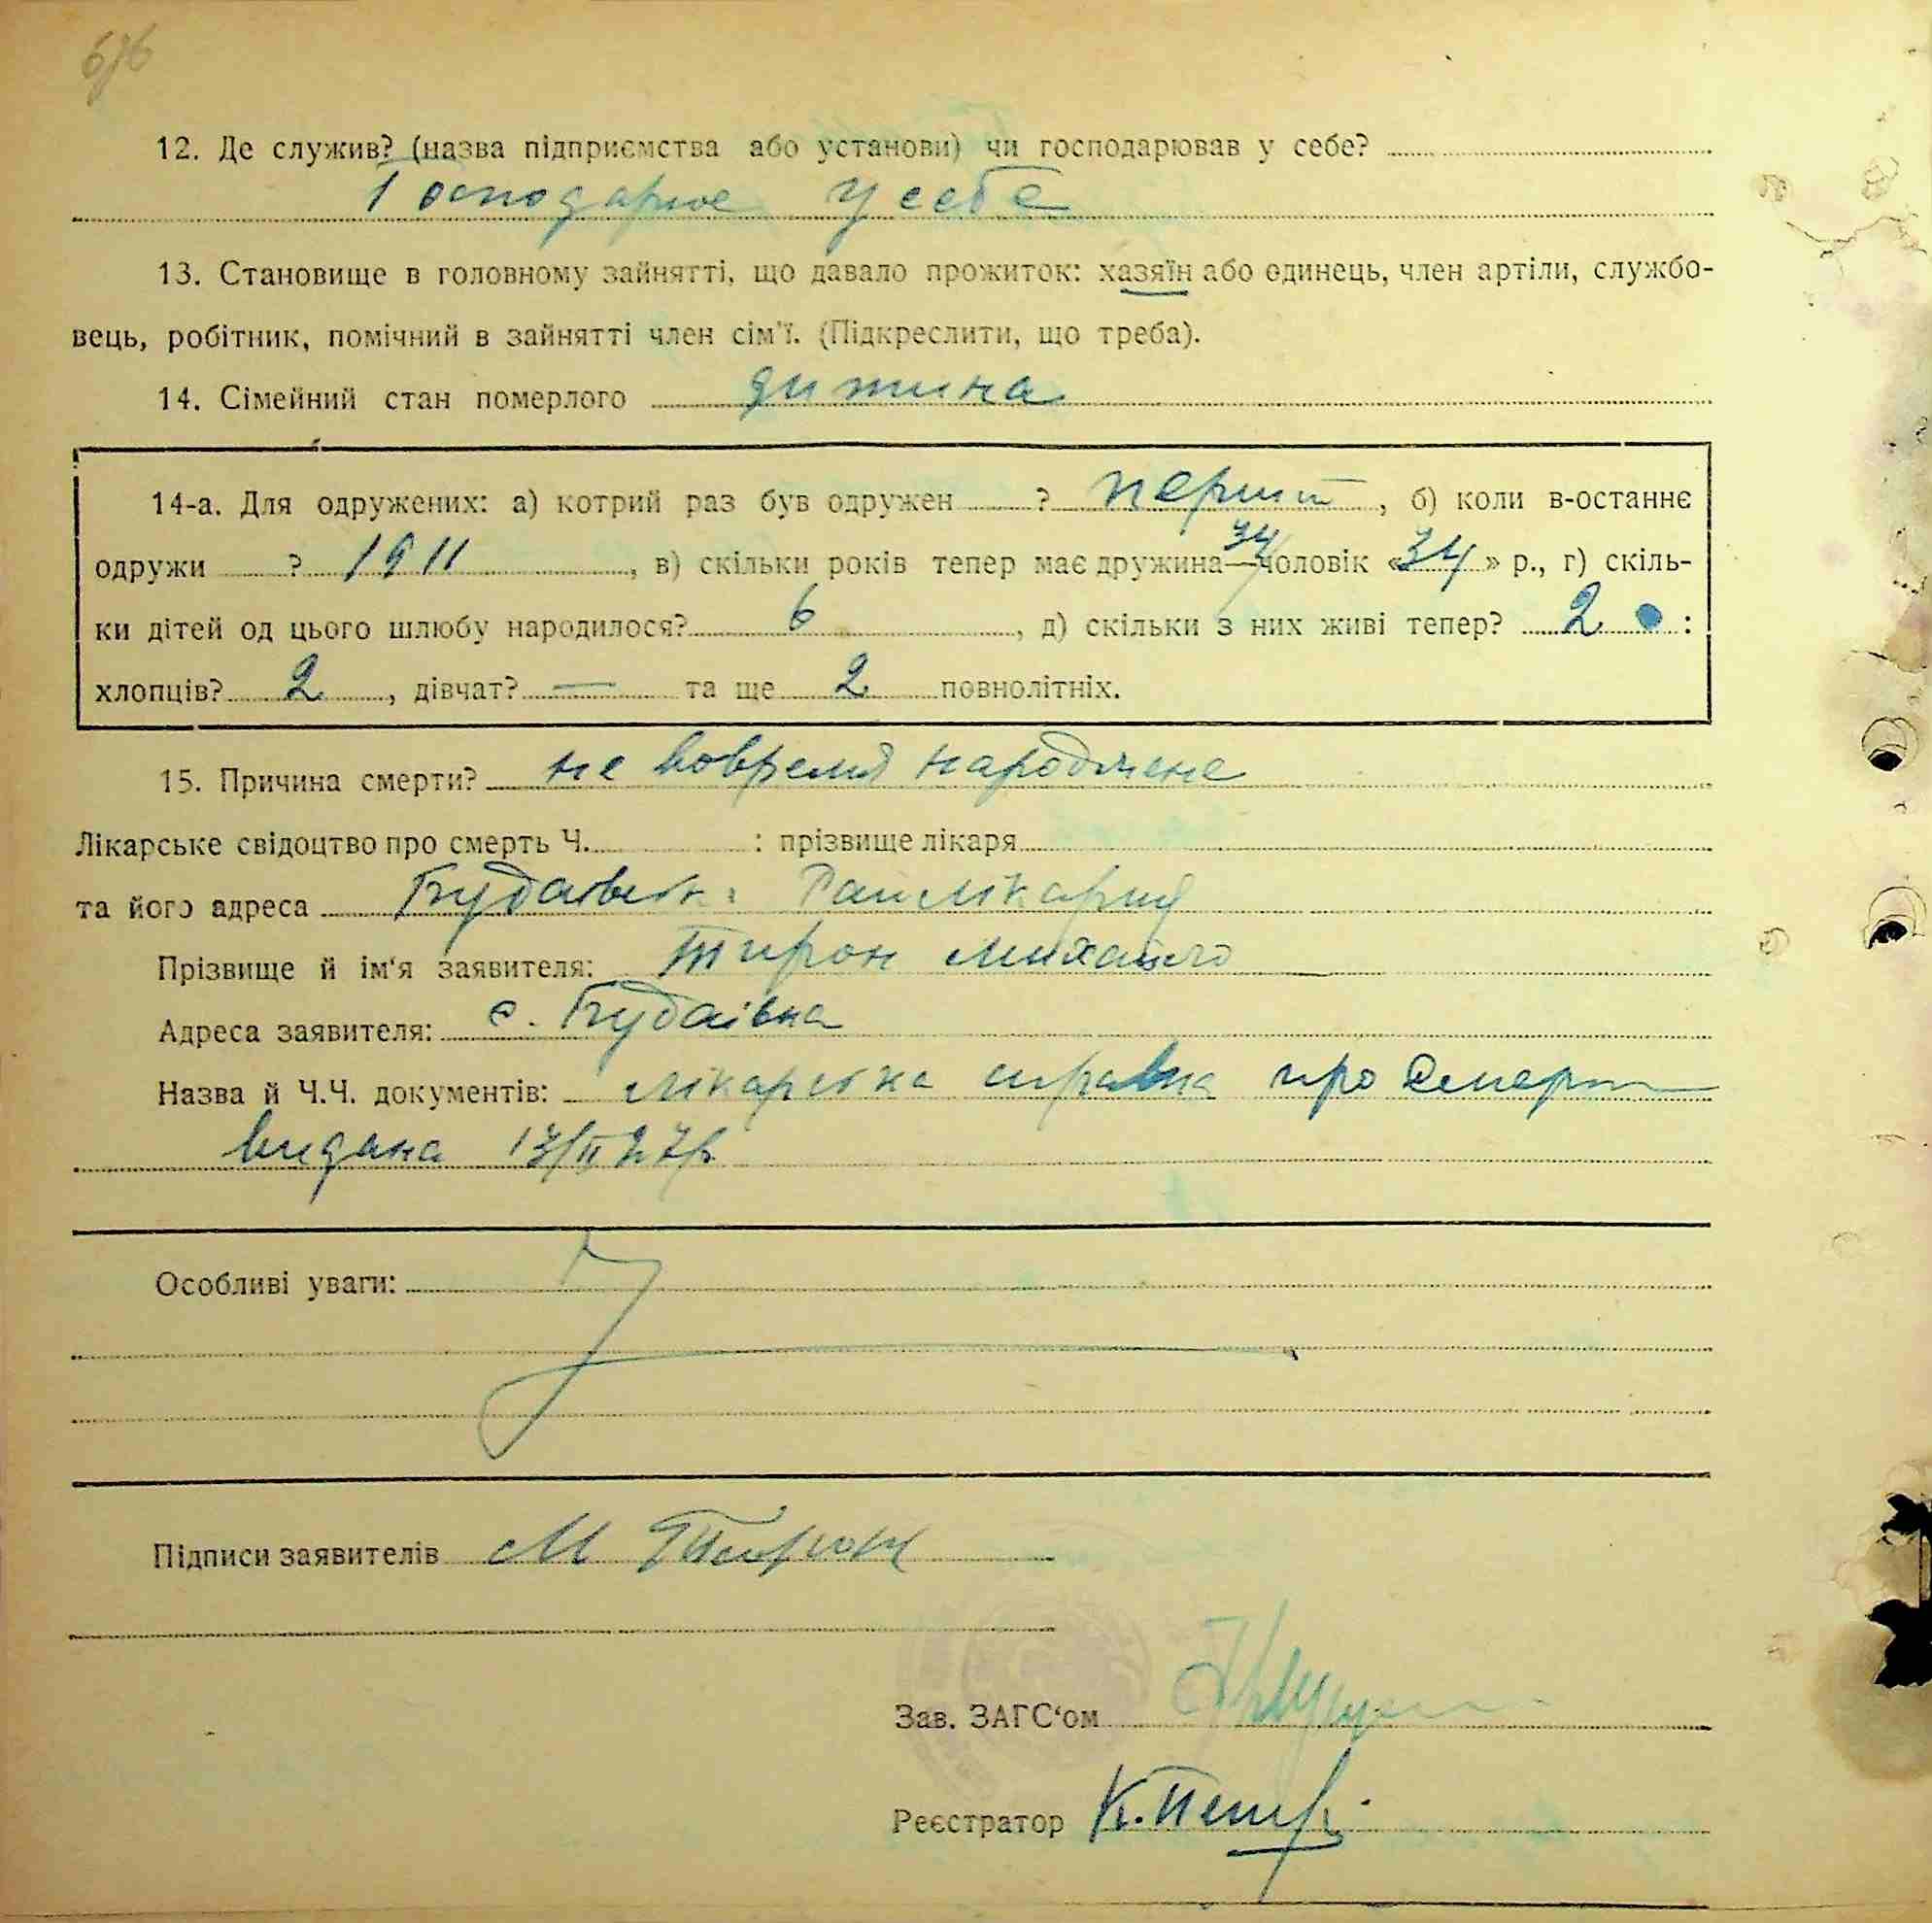 12. Де служив? (назва підприємства або установи) чи господарював у себе?
Господарює у себе
13. Становище в головному зайнятті, що давало прожиток: хазяїн або одинець, член артіли, службо-
вець, робітник, помічний в зайнятті член сім'ї. (Підкреслити, що треба).
14. Сімейний стан померлого дитина
14-а. Для одружених: а) котрий раз був одружен ? перший, б) коли в-останнє
34
одружи ? 1911, в) скільки років тепер має дружина—чоловік «34» р., г) скіль-
ки дітей од цього шлюбу народилося? 6, д) скільки з них живі тепер? 2 :
хлопців? 2, дівчат? — та ще 2 повнолітніх.
15. Причина смерти? не вовремя народжене
Лікарське свідоцтво про смерть Ч. : прізвище лікаря
та його адреса Будаївськ. Райлікарня
Прізвище й ім'я заявителя: Тирон Михайло
Адреса заявителя: с. Будаївка
Назва й Ч.Ч. документів: лікарська справка про смерт
видана 13/II 27р.
Особливі уваги:
Підписи заявителів М Тирон
Зав. ЗАГС'ом
Реєстратор